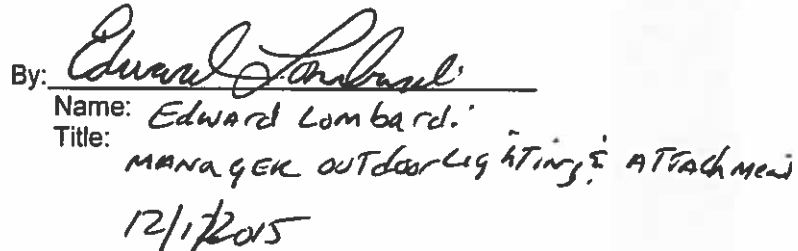 By: Edward Lombardi
Name: Edward Lombardi
Title:
MANAGER OUTdoor Lighting & ATTAchment
12/1/2015